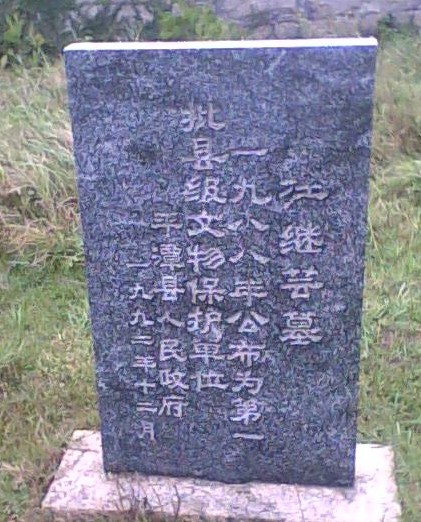 江继芸墓
一九八八年公布为第一
批县级文物保护单位
平潭县人民政府
一九九二年十二月